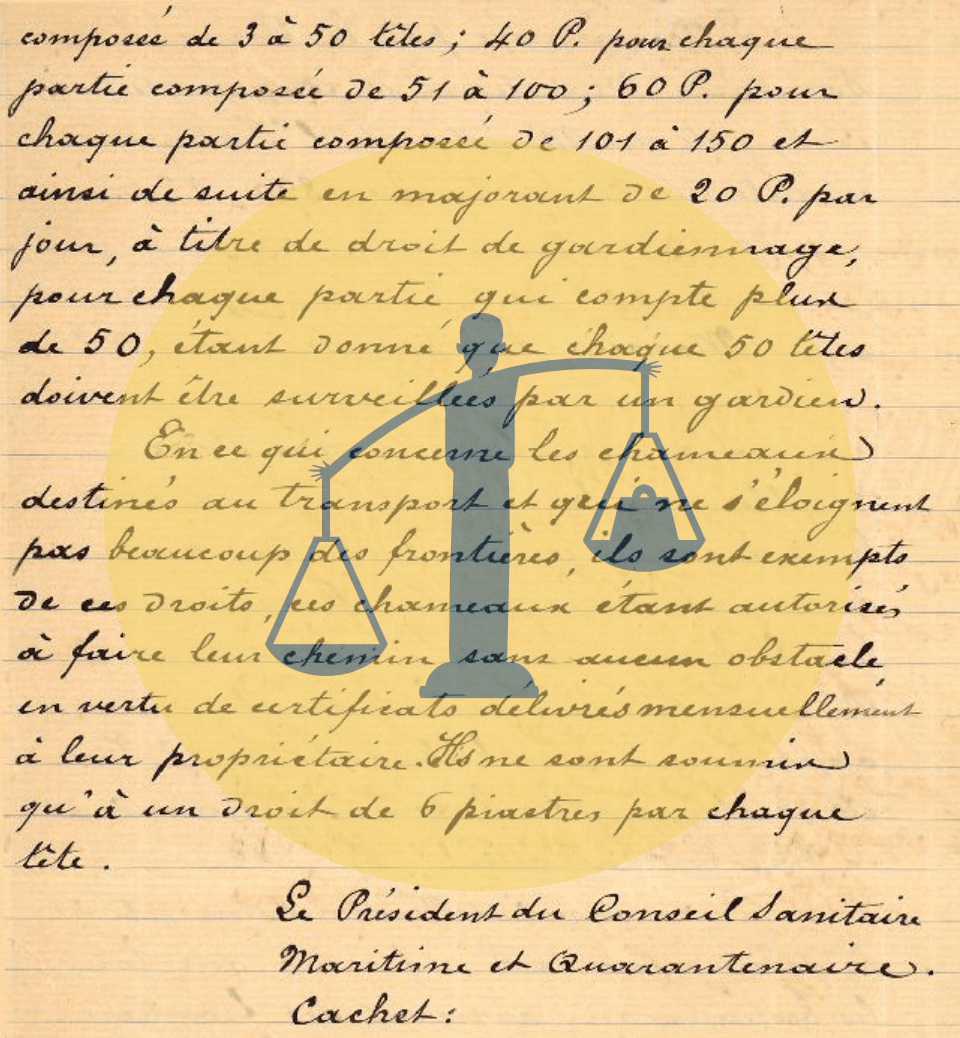 composée de 3 à 50 têtes ; 40 P. pour chaque
partie composée de 51 à 100 ; 60 P. pour
chaque partie composée de 101 à 150 et
ainsi de suite en majorant de 20 P. par
jour, à titre de droit de gardiennage,
pour chaque partie qui compte plus
de 50, étant donné que chaque 50 têtes
doivent être surveillées par un gardien.
En ce qui concerne les chameaux
destinés au transport et qui ne s'éloignent
pas beaucoup des frontières, ils sont exempts
de ces droits, ces chameaux étant autorisés
à faire leur chemin sans aucun obstacle
en vertu de certificats délivrés mensuellement
à leur propriétaire. Ils ne sont soumis
qu'à un droit de 6 piastres par chaque
tête.
Le Président du Conseil Sanitaire
Maritime et Quarantenaire.
Cachet :